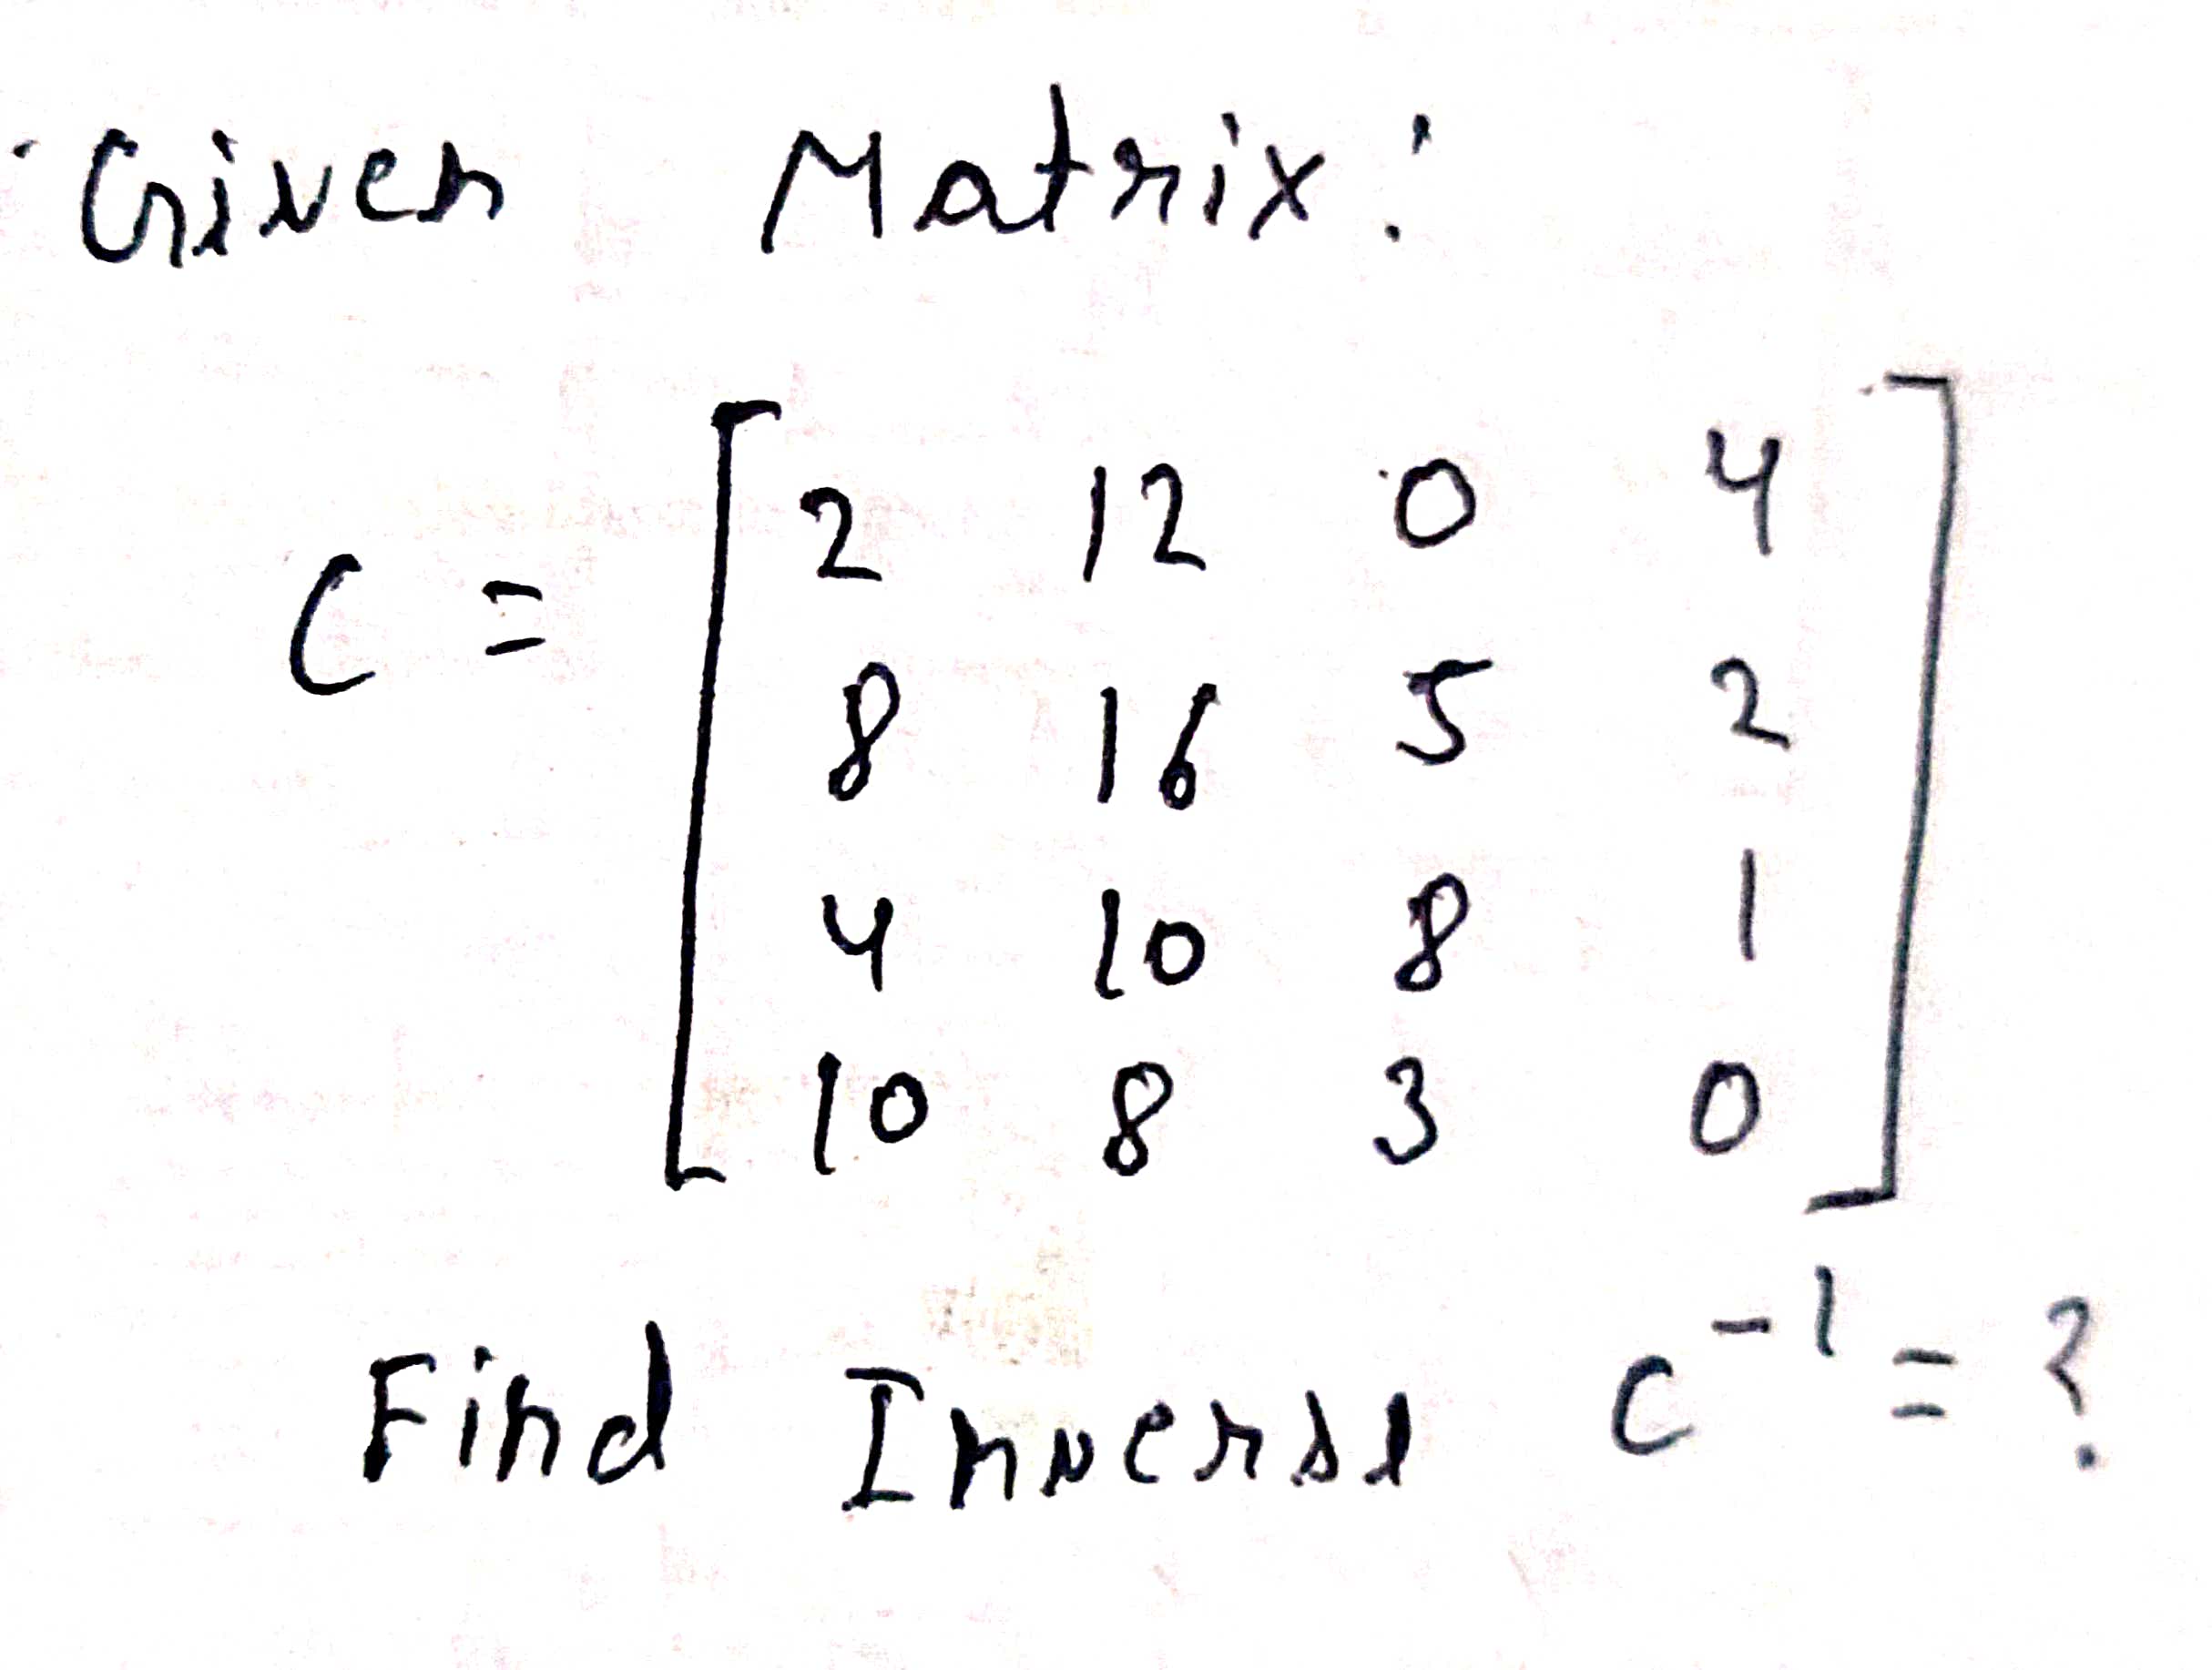 Given Matrix:
C = [ 2 12 0 4
8 16 5 2
4 10 8 1
10 8 3 0 ]
Find Inverse C⁻¹ = ?